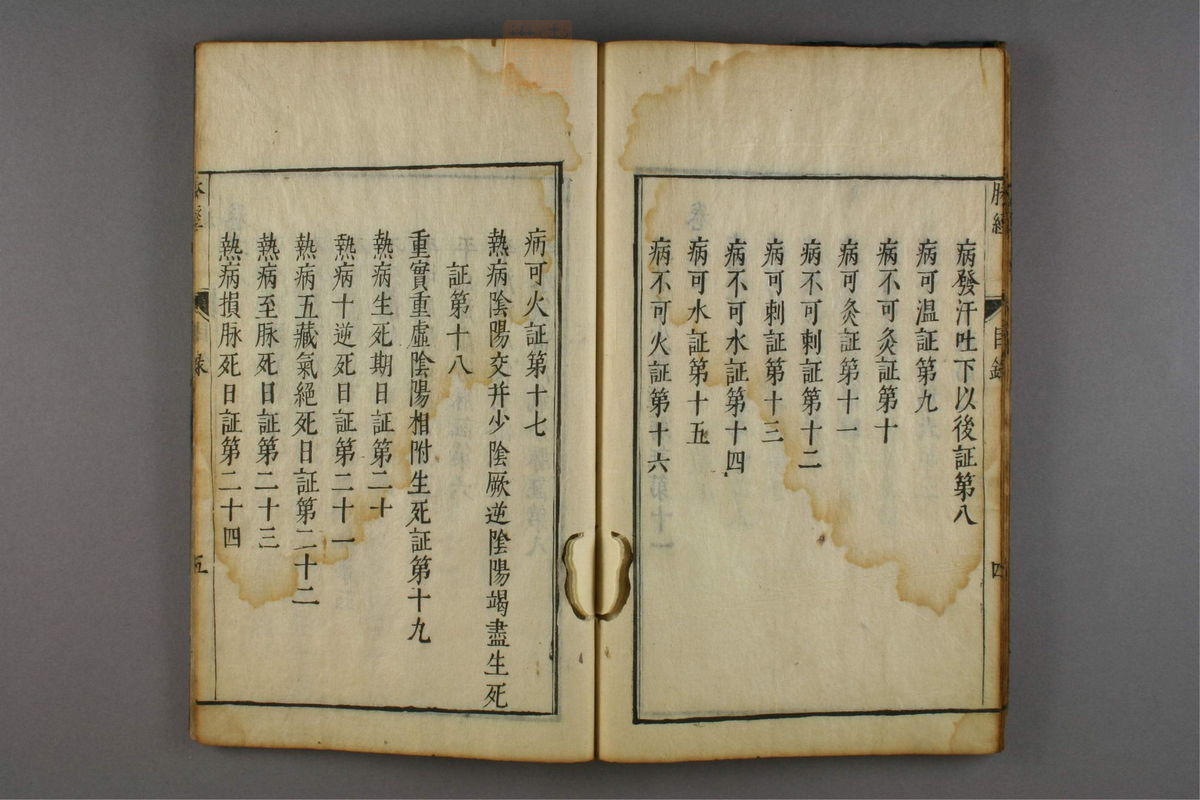 脉經
目錄
四
病發汗吐下以後証第八
病可温証第九
病不可灸証第十
病可灸証第十一
病不可刺証第十二
病可刺証第十三
病不可水証第十四
病可水証第十五
病不可火証第十六
病可火証第十七
熱病陰陽交并少陰厥逆陰陽竭盡生死
証第十八
重實重虛陰陽相附生死証第十九
熱病生死期日証第二十
熱病十逆死日証第二十一
熱病五藏氣絕死日証第二十二
熱病至脉死日証第二十三
熱病損脉死日証第二十四
五